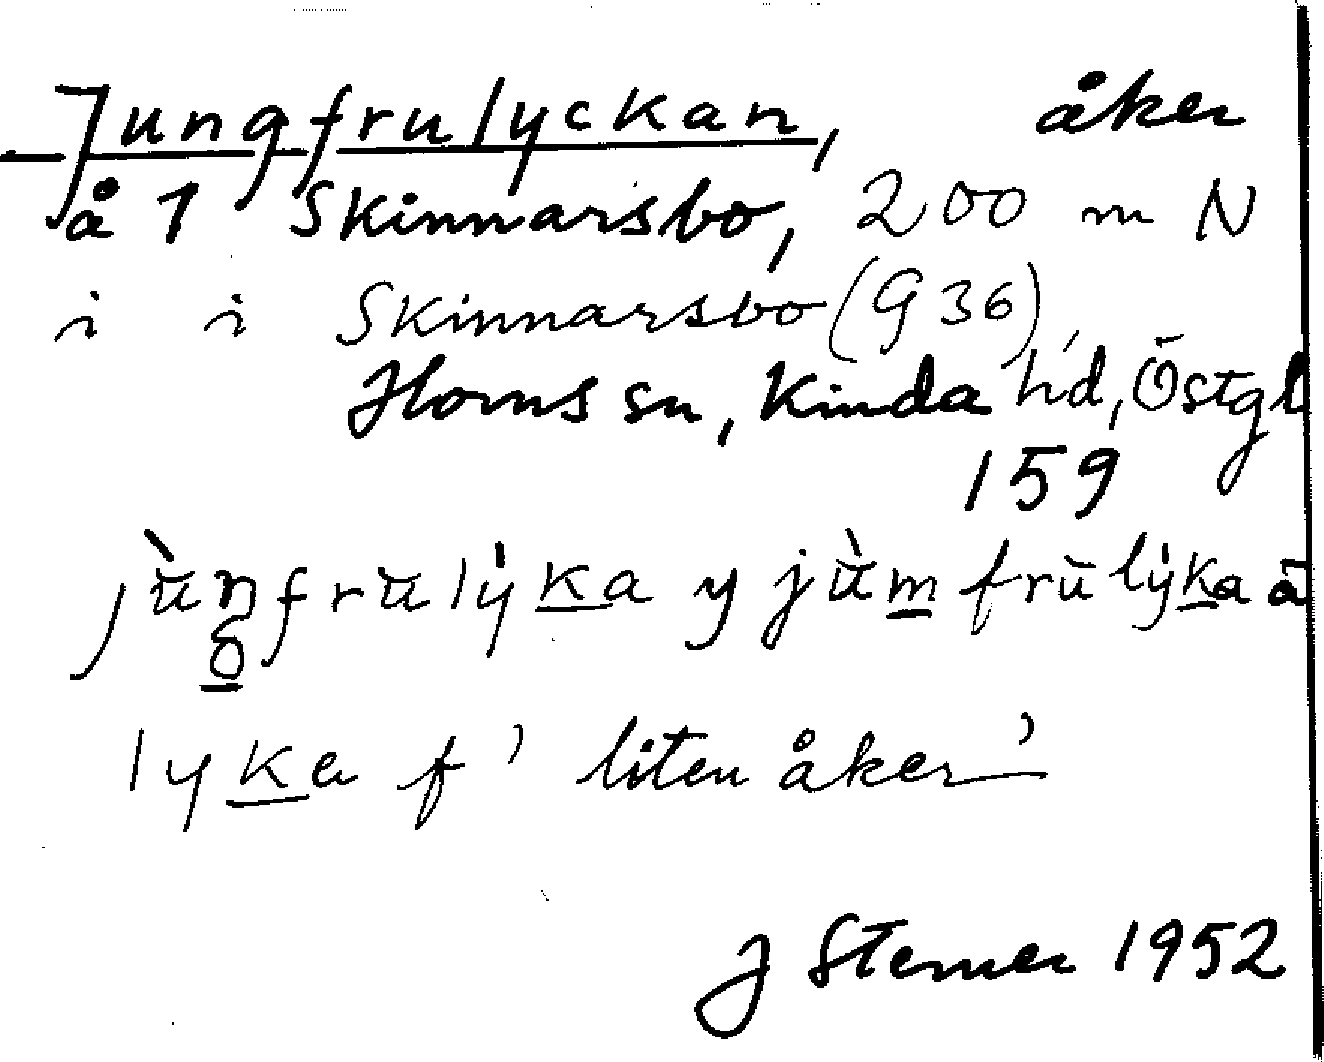 Jungfrulyckan, åker
å 1 Skinnarsbo, 200 m N
i i Skinnarsbo (G 36),
Horns sn, Kinda hd, Östgl
159
jùŋfrūlẏka y jùmfrūlẏka ā
lyka f ' liten åker '
J Sterner 1952